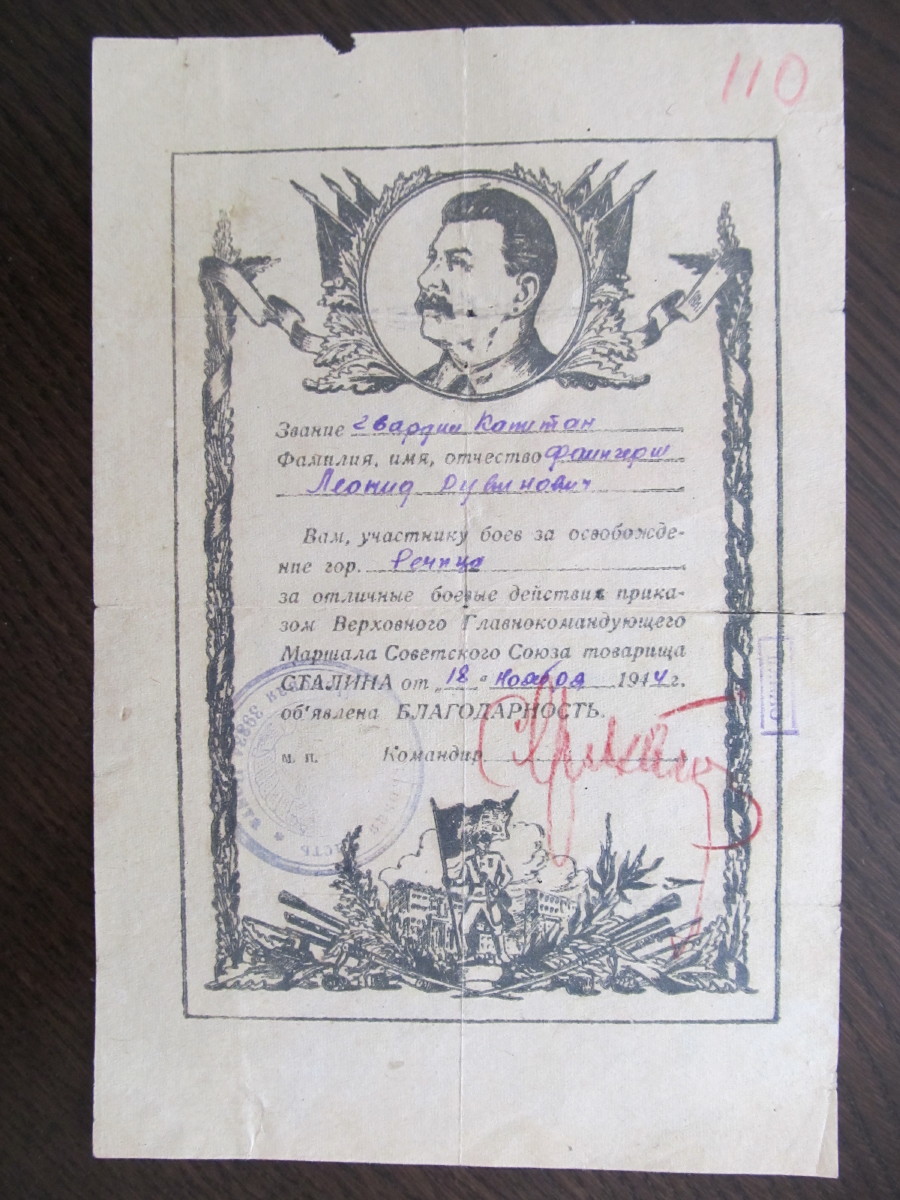 110
Звание гвардии Капитан
Фамилия, имя, отчество Фаингерш
Леонид Рувинович
Вам, участнику боев за освобожде-
ние гор. Речица
за отличные боевые действия прика-
зом Верховного Главнокомандующего
Маршала Советского Союза товарища
СТАЛИНА от „18" ноября 1944г.
об'явлена БЛАГОДАРНОСТЬ.
м. п. Командир